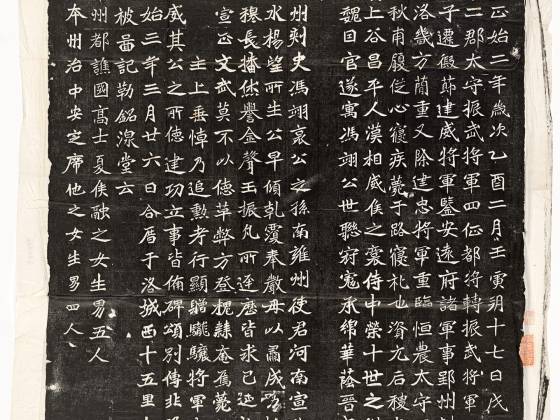 正始二年歲次乙酉二月壬寅朔十七日戊
二郡太守振武將軍四征都將轉振武將軍
子遷假莭建威將軍鑒安遠府諸軍事郢州
洛幾方蘭重又除建忠將軍重臨恒農太守
秋甫履從心寢疾薨于路寢礼也資元后稷
上谷昌平人漢相威侯之裔侍中榮十世之
魏日官遂寓馮翊公世聯寇承綿華蔭晉
州刾史馮翊哀公之孫南雍州使君河南宣
水楊望所生公早傾乹覆奉嚴母以肅成
穆長播休譽金聲玉振凡所逕歷皆求己延
宣文武莫不以德革弊方登槐棘奄薨
主上垂悼乃追勳考行顯贈龍驤將軍
威其公之所德建功立事皆俻碑頌別傳非
始三年三月廿六日合厝于洛城西十五里
被啚記勒銘湶堂云
州都譙國高士夏侯融之女生男五人
本州治中安定席他之女生男四人